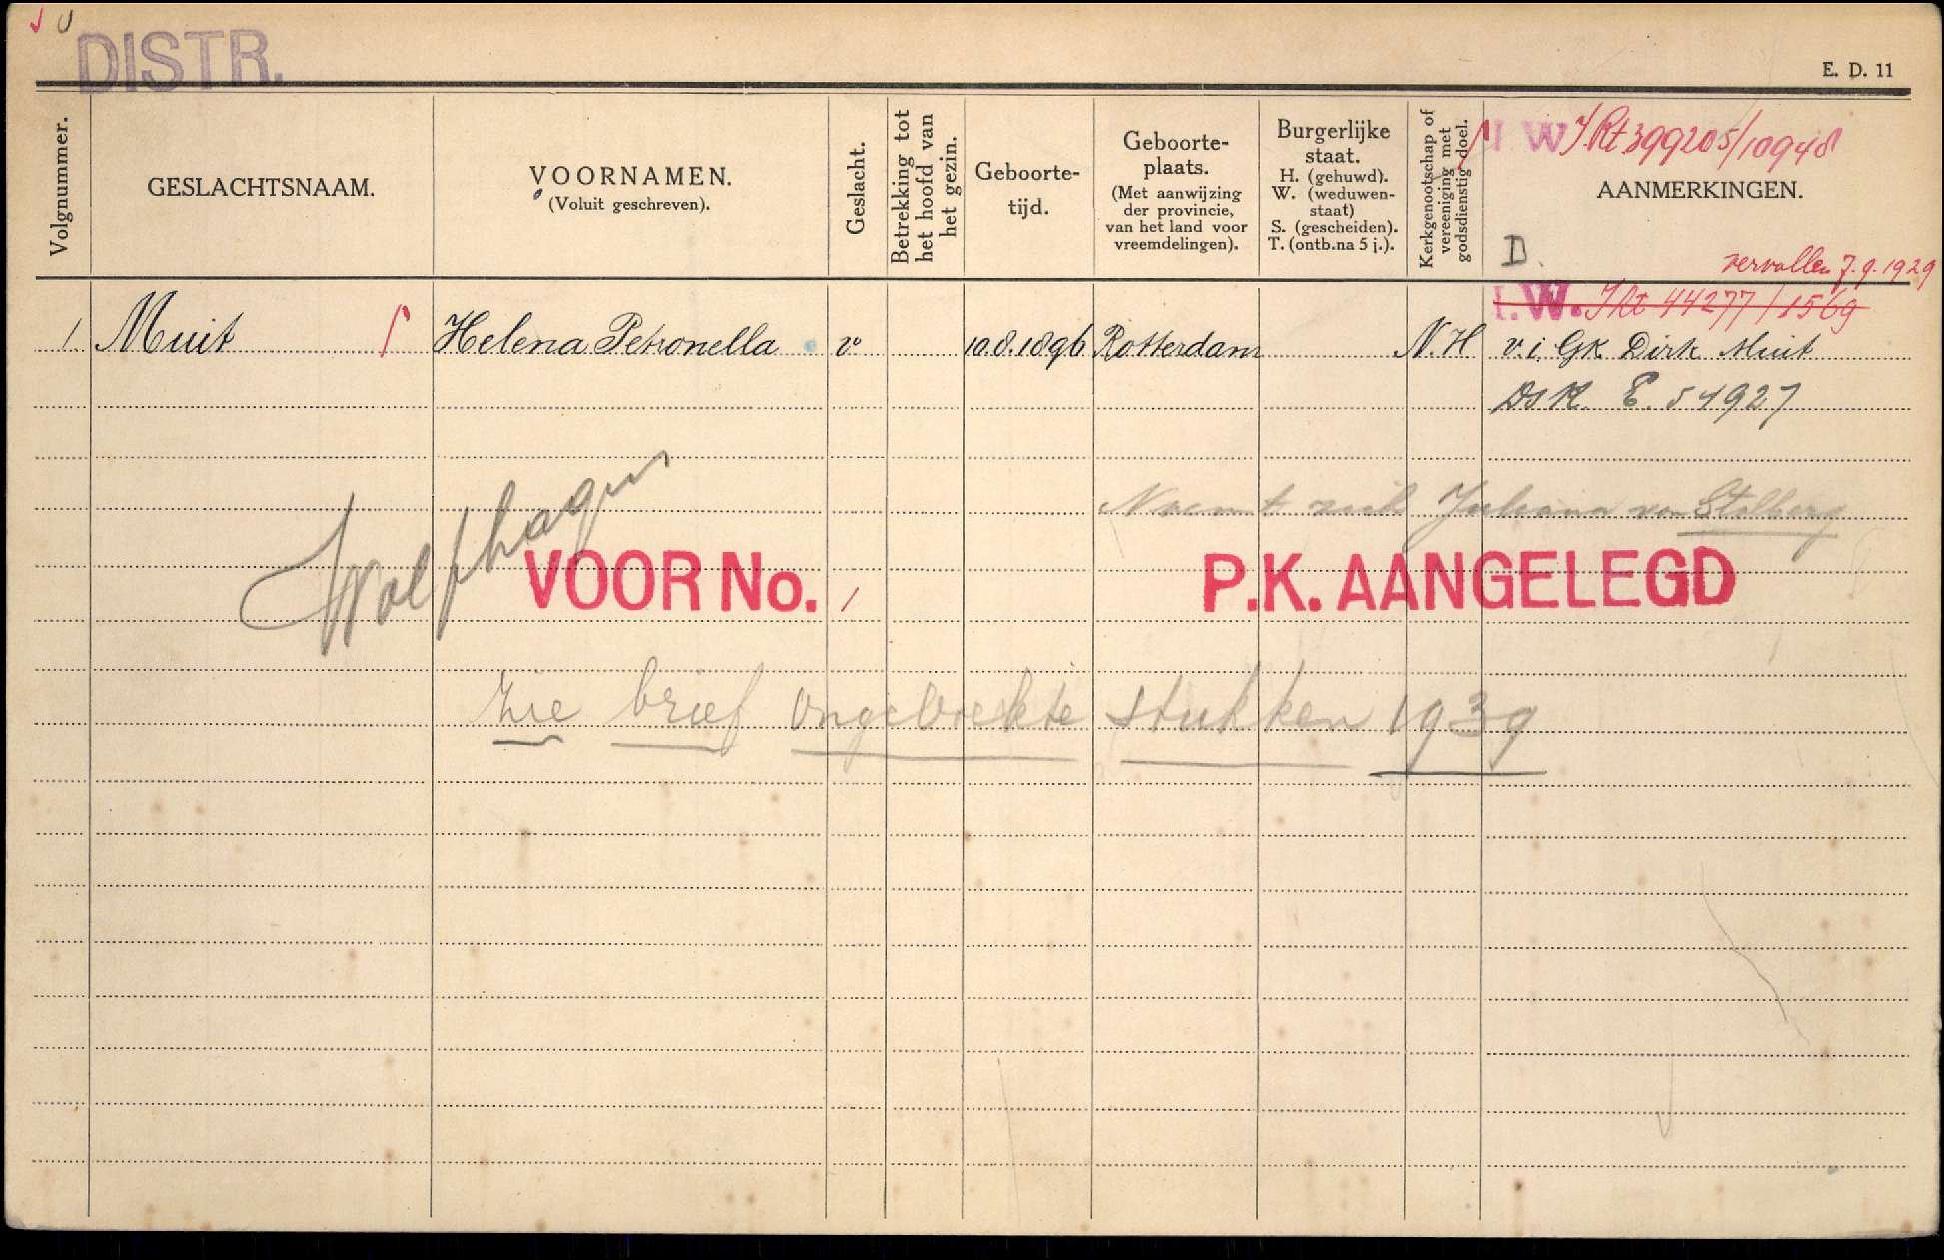 DISTR.
E. D. 11
Volgnummer.
GESLACHTSNAAM.
VOORNAMEN.
(Voluit geschreven).
Geslacht.
Betrekking tot
het hoofd van
het gezin.
Geboorte-
tijd.
Geboorte-
plaats.
(Met aanwijzing
der provincie,
van het land voor
vreemdelingen).
Burgerlijke
staat.
H. (gehuwd).
W. (weduwen-
staat)
S. (gescheiden).
T. (ontb.na 5 j.).
Kerkgenootschap of
vereeniging met
godsdienstig doel.
I. W 399205/10948
AANMERKINGEN.
D.
vervallen 7.9.1929
I. W. 44277/1569
1 Muit Helena Petronella v 10.8.1896 Rotterdam N.H v.i. GK Dirk Muit
DsK. E. 54927
Noemt zich Juliana van Stolberg
Wolfhagen
VOOR No. 1 P.K. AANGELEGD
Zie brief ongelockte stukken 1939